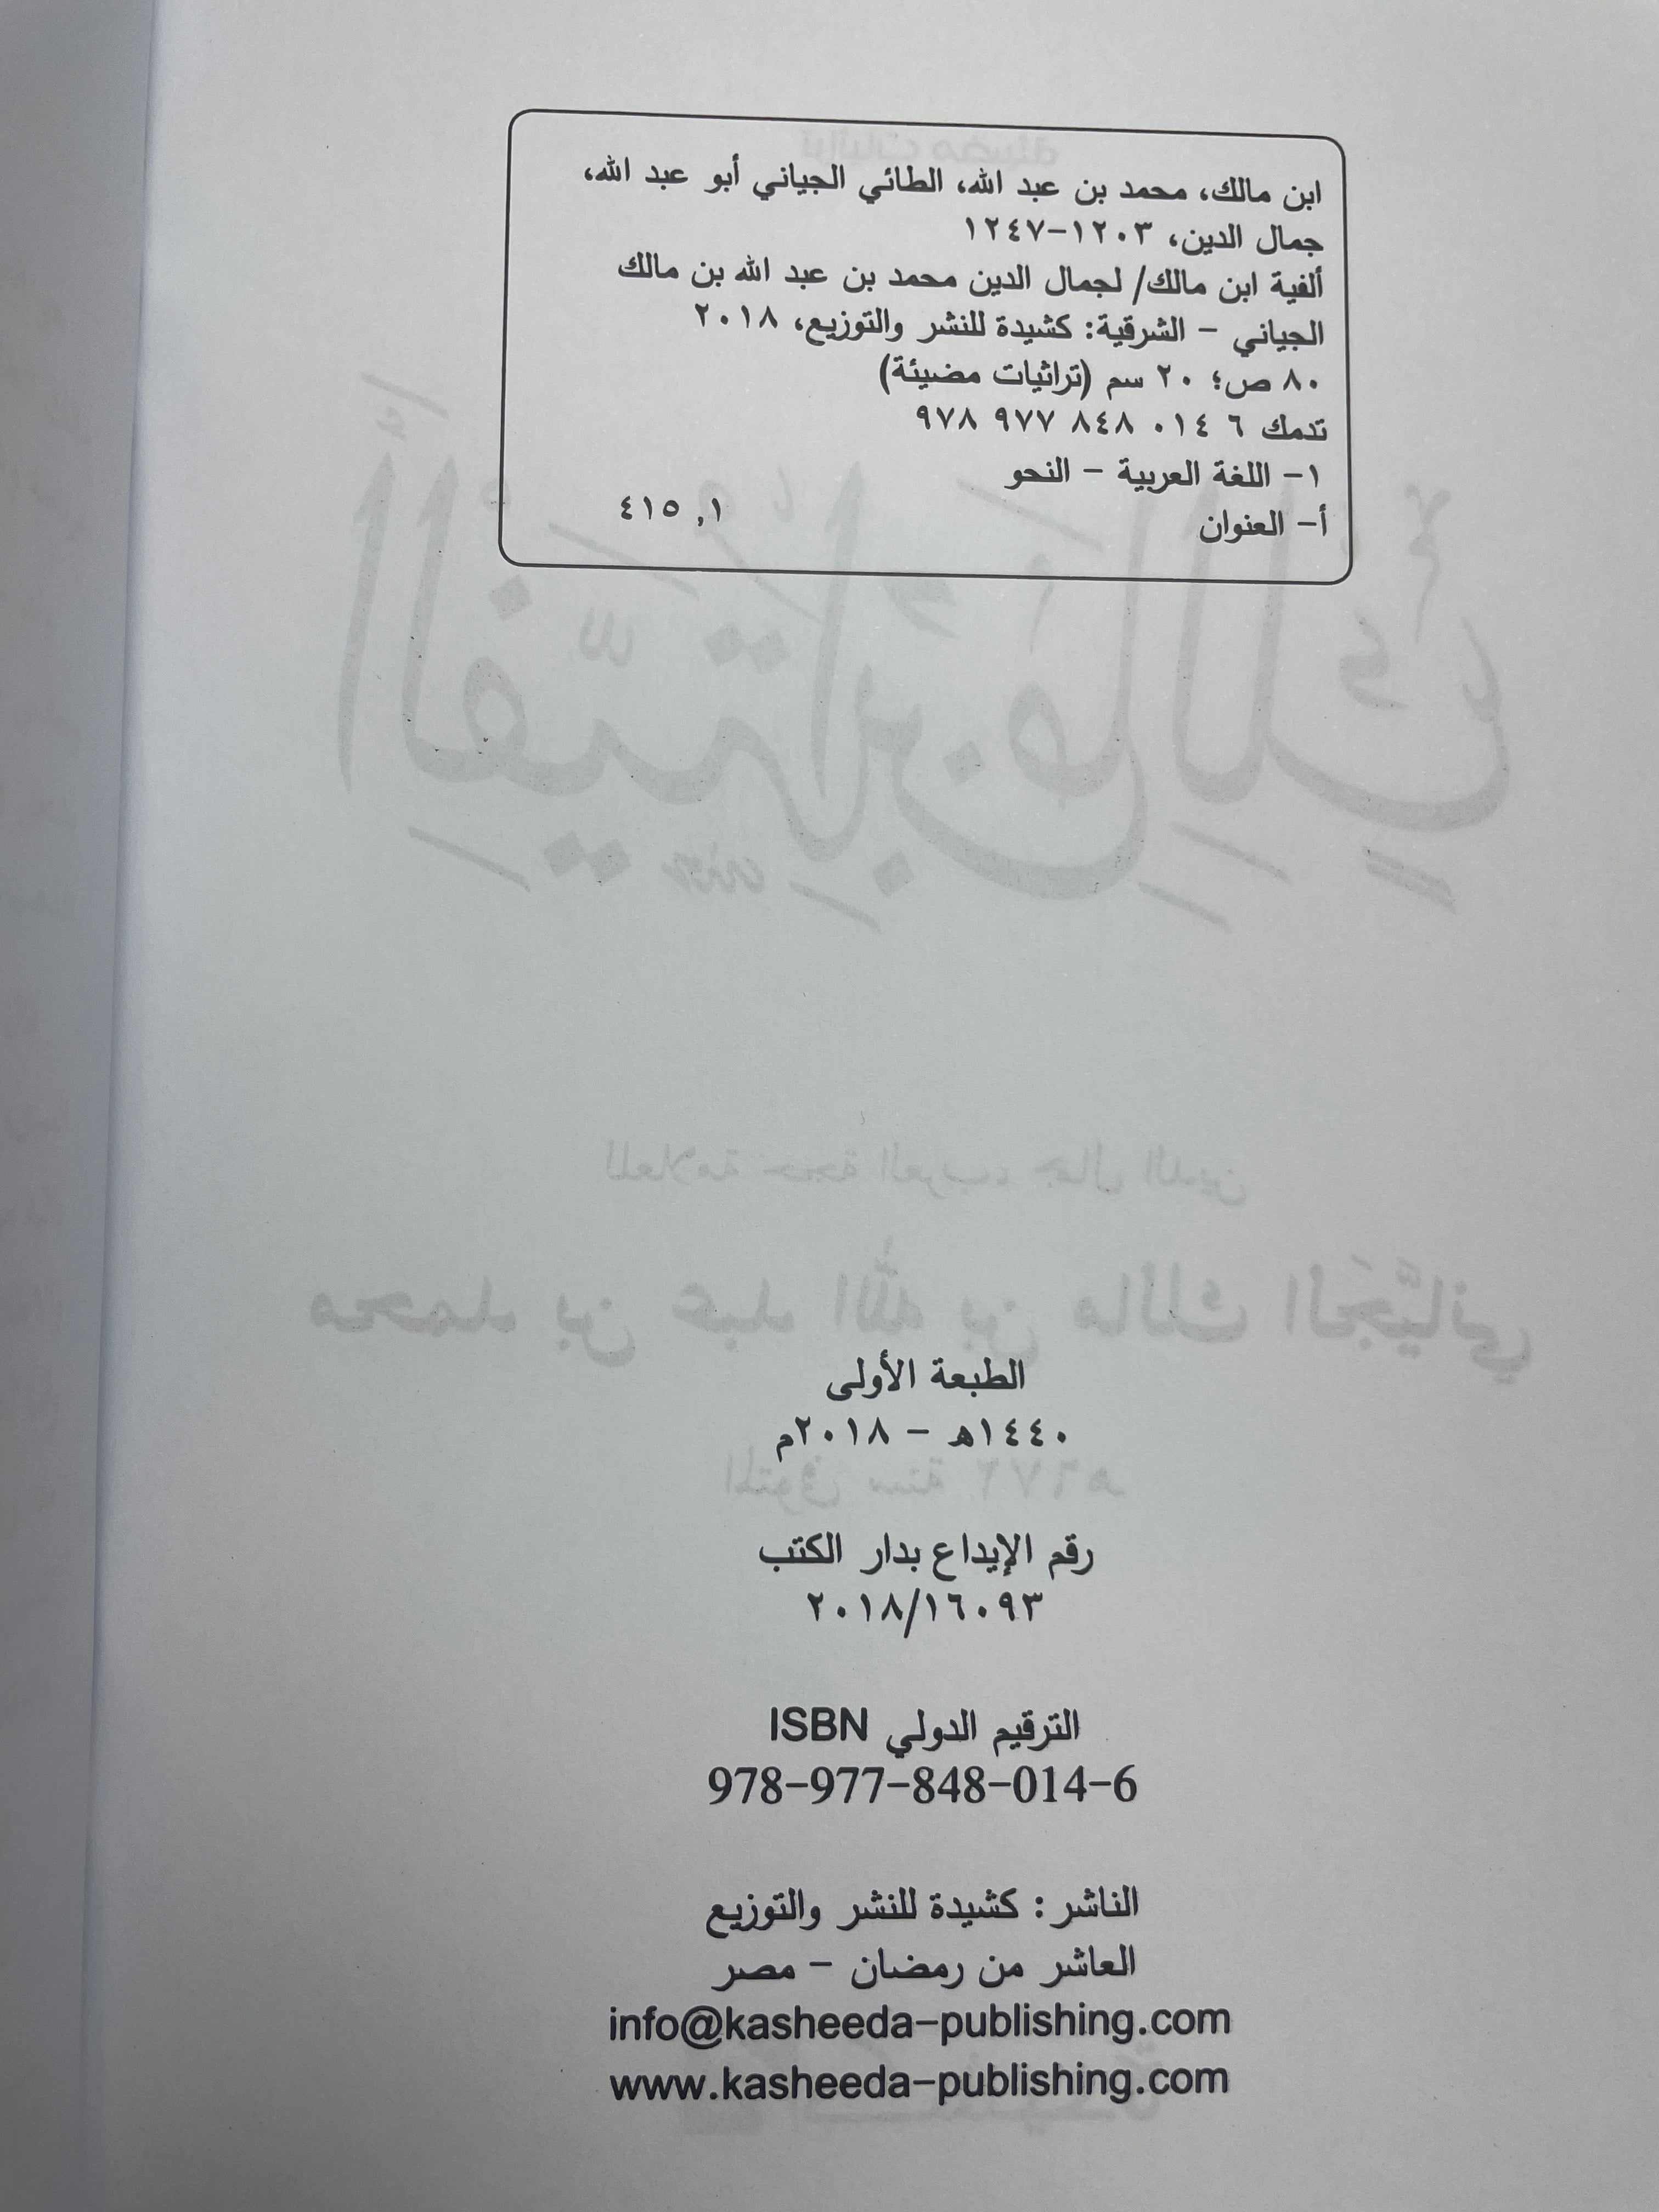 ابن مالك، محمد بن عبد الله، الطائي الجياني أبو عبد الله،
جمال الدين، ١٢٠٣-١٢٤٧
ألفية ابن مالك/ لجمال الدين محمد بن عبد الله بن مالك
الجياني - الشرقية: كشيدة للنشر والتوزيع، ٢٠١٨
٨٠ ص؛ ٢٠ سم (تراثيات مضيئة)
تدمك ٦ ٠١٤ ٨٤٨ ٩٧٧ ٩٧٨
١- اللغة العربية - النحو
أ- العنوان ٤١٥ ,١
الطبعة الأولى
١٤٤٠هـ - ٢٠١٨م
رقم الإيداع بدار الكتب
٢٠١٨/١٦٠٩٣
الترقيم الدولي ISBN
978-977-848-014-6
الناشر: كشيدة للنشر والتوزيع
العاشر من رمضان - مصر
info@kasheeda-publishing.com
www.kasheeda-publishing.com